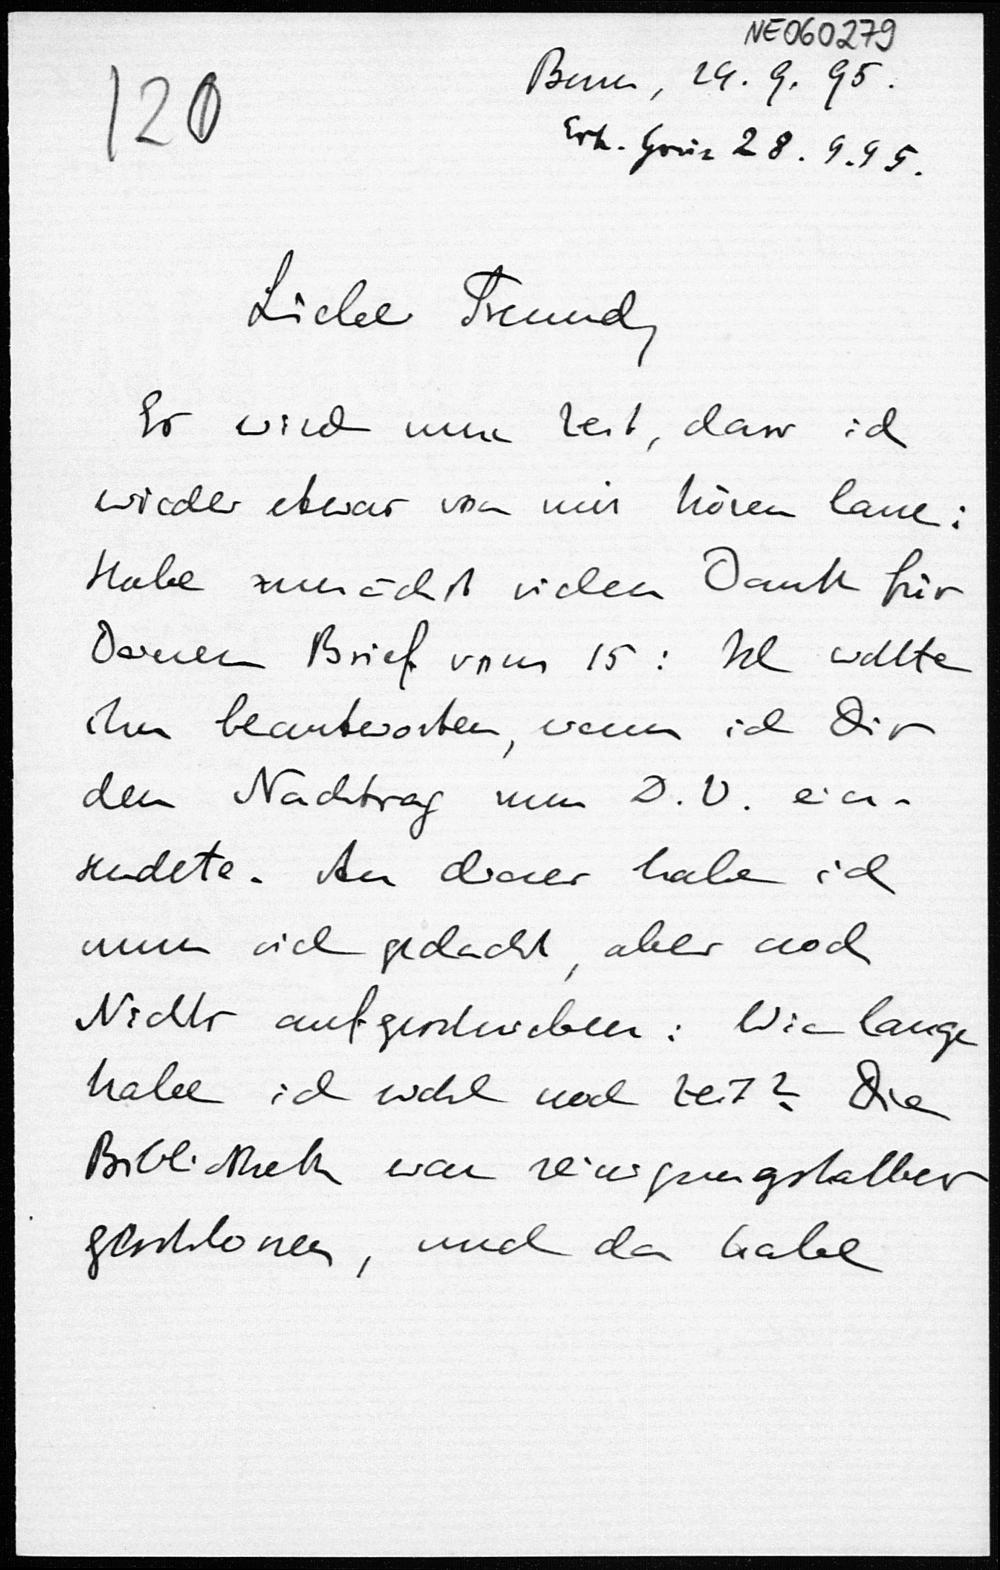 NE060279
120
Bonn, 24. 9. 95.
Erh. Graz 28. 9. 95.
Lieber Freund,
Es wird nun Zeit, dass ich
wieder etwas von mir hören lasse:
Habe zunächst vielen Dank für
Deinen Brief vom 15: Ich wollte
ihn beantworten, wenn ich Dir
den Nachtrag zum D.V. ein-
sendete. An diesen habe ich
nun viel gedacht, aber noch
Nichts aufgeschrieben: Wie lange
habe ich wohl noch Zeit? Die
Bibliothek war reinigungshalber
geschlossen, und da habe